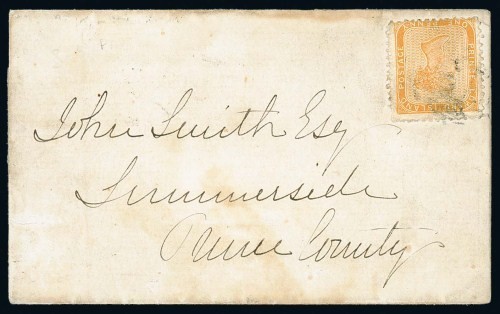 John Smith Esq
Summerside
Prince County
POSTAGE